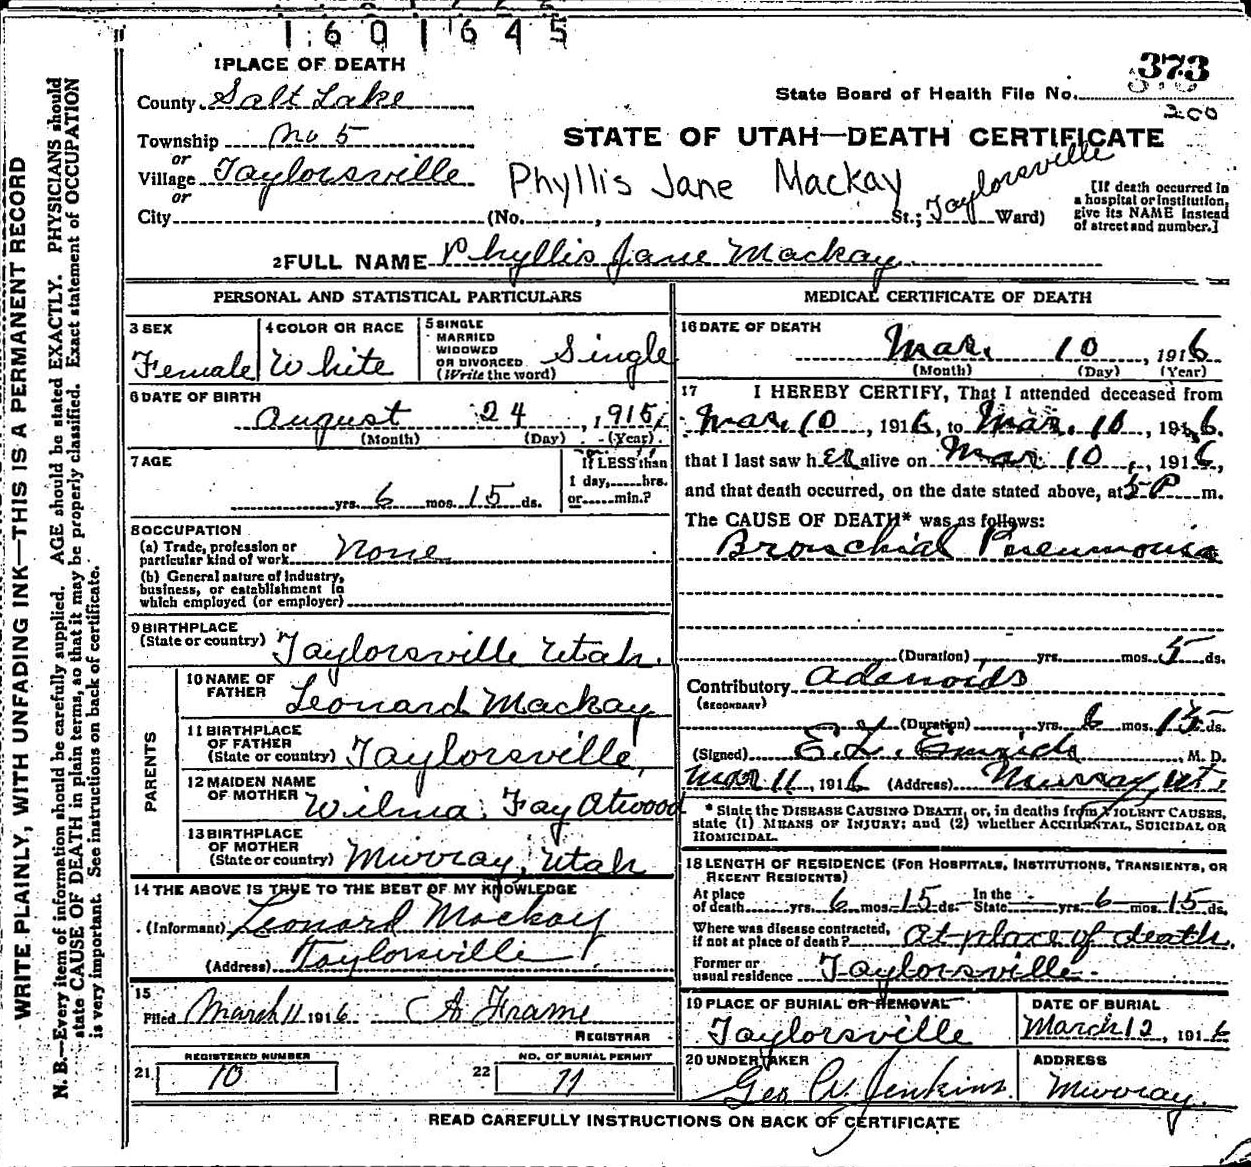 1601645
1 PLACE OF DEATH
373
County Salt Lake
State Board of Health File No.
200
Township No 5
STATE OF UTAH—DEATH CERTIFICATE
or
Village Taylorsville
Phyllis Jane Mackay
or
City (No. , St.; Taylorsville Ward)
[If death occurred in a hospital or institution, give its NAME instead of street and number.]
2 FULL NAME Phyllis Jane Mackay
PERSONAL AND STATISTICAL PARTICULARS
3 SEX
Female
4 COLOR OR RACE
White
5 SINGLE
MARRIED
WIDOWED
OR DIVORCED
(Write the word)
Single
6 DATE OF BIRTH
August 24, 1915
(Month) (Day) (Year)
7 AGE
yrs. 6 mos. 15 ds.
If LESS than
1 day, hrs.
or min.?
8 OCCUPATION
(a) Trade, profession or
particular kind of work None
(b) General nature of industry,
business, or establishment in
which employed (or employer)
9 BIRTHPLACE
(State or country) Taylorsville Utah.
PARENTS
10 NAME OF
FATHER Leonard Mackay
11 BIRTHPLACE
OF FATHER
(State or country) Taylorsville,
12 MAIDEN NAME
OF MOTHER Wilma Fay Atwood
13 BIRTHPLACE
OF MOTHER
(State or country) Murray, Utah
14 THE ABOVE IS TRUE TO THE BEST OF MY KNOWLEDGE
(Informant) Leonard Mackay
(Address) Taylorsville
15
Filed March 11 1916 A Frame
REGISTRAR
REGISTERED NUMBER
21. 10
NO. OF BURIAL PERMIT
22 11
MEDICAL CERTIFICATE OF DEATH
16 DATE OF DEATH
Mar. 10, 1916
(Month) (Day) (Year)
17 I HEREBY CERTIFY, That I attended deceased from
Mar. 10, 1916, to Mar. 10, 1916.
that I last saw h er alive on Mar. 10, 1916,
and that death occurred, on the date stated above, at 5 P m.
The CAUSE OF DEATH* was as follows:
Bronchial Pneumonia
(Duration) yrs. mos. 5 ds.
Contributory Adenoids
(SECONDARY)
(Duration) yrs. 6 mos. 15 ds.
(Signed) E. L. M. D.
Mar 11, 1916 (Address) Murray, Ut.
* State the DISEASE CAUSING DEATH, or, in deaths from VIOLENT CAUSES,
state (1) MEANS OF INJURY; and (2) whether ACCIDENTAL, SUICIDAL OR
HOMICIDAL.
18 LENGTH OF RESIDENCE (FOR HOSPITALS, INSTITUTIONS, TRANSIENTS, OR
RECENT RESIDENTS)
At place
of death yrs. 6 mos. 15 ds. In the
State yrs. 6 mos. 15 ds.
Where was disease contracted,
if not at place of death? At place of death.
Former or
usual residence Taylorsville
19 PLACE OF BURIAL OR REMOVAL
Taylorsville
DATE OF BURIAL
March 12, 1916
20 UNDERTAKER
Geo W. Jenkins
ADDRESS
Murray.
READ CAREFULLY INSTRUCTIONS ON BACK OF CERTIFICATE
WRITE PLAINLY, WITH UNFADING INK—THIS IS A PERMANENT RECORD
N. B.—Every item of information should be carefully supplied. AGE should be stated EXACTLY. PHYSICIANS should
state CAUSE OF DEATH in plain terms, so that it may be properly classified. Exact statement of OCCUPATION
is very important. See instructions on back of certificate.